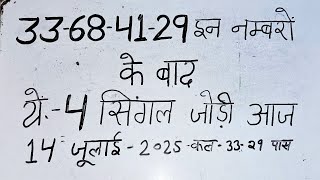 33-68-41-29 इन नम्बरों
के बाद
ये.-4 सिंगल जोड़ी आज
14 जूलाई - 2025 -कल- 33-29 पास